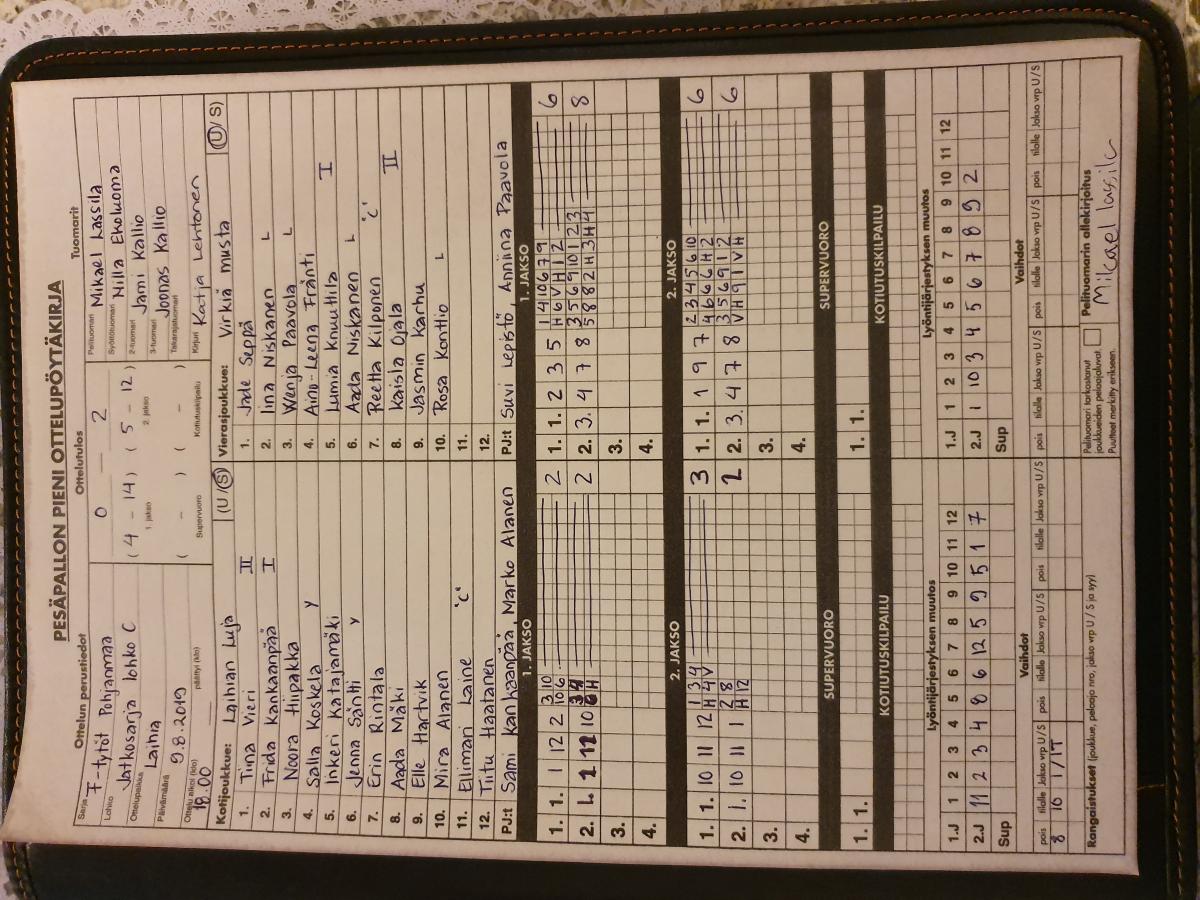 PESÄPALLON PIENI OTTELUPÖYTÄKIRJA
Ottelun perustiedot
Ottelutulos
Tuomarit
Sarja F-tytöt Pohjanmaa
Lohko Jatkosarja lohko C
Ottelupaikka Laihia
Päivämäärä 9.8.2019
Ottelu alkoi (klo) 18.00 päättyi (klo)
0 — 2
(4 - 14) (5 - 12)
1. jakso 2. jakso
( - ) ( - )
Supervuoro Kotiutuskilpailu
Pelituomari Mikael Lassila
Syöttötuomari Nilla Ekoluoma
2-tuomari Jami Kallio
3-tuomari Joonas Kallio
Takarajatuomari
Kirjuri Katja Lehtonen
Kotijoukkue: Laihian Luja (U/S)
1. Tiina Vieri II
2. Frida Kankaanpää I
3. Noora Hiipakka
4. Salla Koskela y
5. Inkeri Katajamäki
6. Jenna Säntti y
7. Erin Rintala
8. Aada Mäki
9. Elle Hartvik
10. Mira Alanen
11. Ellimari Laine "C"
12. Tiitu Haatainen
PJ:t Sami Kankaanpää, Marko Alanen
Vierasjoukkue: Virkiä musta (U/S)
1. Jade Seppä
2. Iina Niskanen L
3. Wenja Paavola L
4. Aino-Leena Fränti
5. Lumia Knuuttila I
6. Aada Niskanen L
7. Reetta Kilponen "C"
8. Kaisla Ojala II
9. Jasmin Karhu
10. Rosa Kontio L
11.
12.
PJ:t Suvi Lepistö, Anniina Paavola
1. JAKSO
1. 1. 1 12 2 3 10 2
10 6
2. 1. 1 11 10 3 4 2
6 H
3.
4.
1. JAKSO
1. 1. 2 3 5 1 4 10 6 7 9 6
H 6 V H 1 2
2. 3. 4 7 8 3 5 6 9 10 1 2 3 8
5 8 8 2 H 3 H 4
3.
4.
2. JAKSO
1. 1. 10 11 12 1 3 4 3
H 4 V
2. 1. 10 11 1 2 8 2
H 12
3.
4.
2. JAKSO
1. 1. 1 9 7 2 3 4 5 6 10 6
4 6 6 6 H 2
2. 3. 4 7 8 3 5 6 9 1 2 6
V H 9 1 V H
3.
4.
SUPERVUORO
1. 1.
SUPERVUORO
1. 1.
KOTIUTUSKILPAILU
KOTIUTUSKILPAILU
Lyöntijärjestyksen muutos
1.J 1 2 3 4 5 6 7 8 9 10 11 12
2.J 11 2 3 4 8 6 12 5 9 5 1 7
Sup
Lyöntijärjestyksen muutos
1.J 1 2 3 4 5 6 7 8 9 10 11 12
2.J 1 10 3 4 5 6 7 8 9 2
Sup
Vaihdot
pois tilalle Jakso vrp U/S pois tilalle Jakso vrp U/S pois tilalle Jakso vrp U/S
8 10 1/1T
Vaihdot
pois tilalle Jakso vrp U/S pois tilalle Jakso vrp U/S pois tilalle Jakso vrp U/S
Rangaistukset (joukkue, pelaaja nro, jakso vrp U/S ja syy)
Pelituomari tarkastanut
joukkueiden pelaajaluvat.
Puutteet merkitty erikseen.
Pelituomarin allekirjoitus
Mikael Lassila